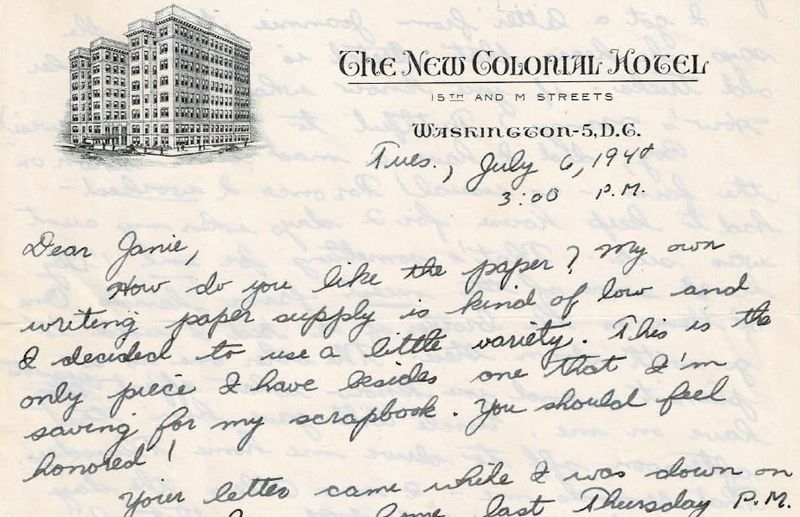 The New Colonial Hotel
15TH AND M STREETS
Washington-5, D.C.
Tues., July 6, 1948
3:00 P.M.
Dear Janie,
How do you like the paper? My own
writing paper supply is kind of low and
I decided to use a little variety. This is the
only piece I have besides one that I'm
saving for my scrapbook. You should feel
honored!
Your letter came while I was down on
last Thursday P.M.